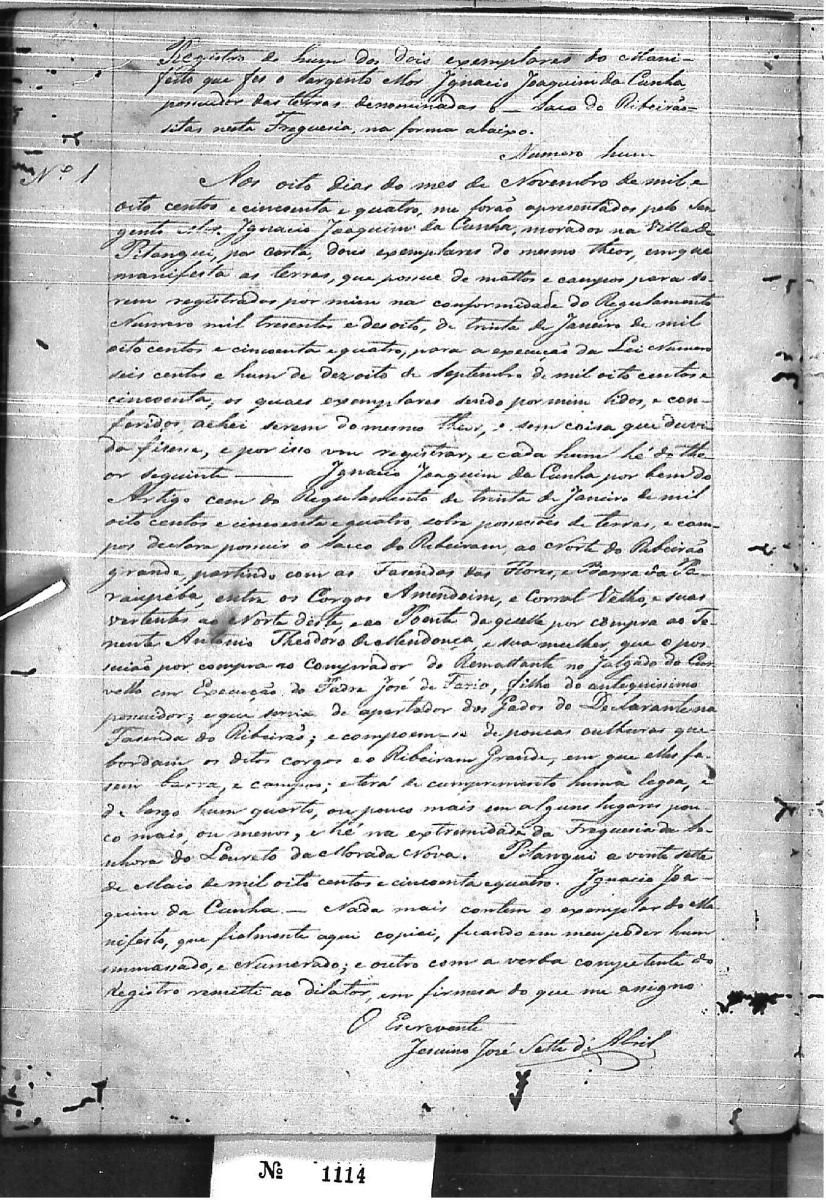 Registro de hum dos dois exemplares do Mani-
festo que fes o Sargento Mor Ignacio Joaquim da Cunha
possuidor das terras denominadas o - Saco do Ribeirão -
sitas nesta Freguesia, na forma abaixo.
Numero hum
Nº 1
Aos oito dias do mes de Novembro de mil e
oito centos e cincoenta e quatro, me forão apresentados pelo Sar-
gento Mor Ignacio Joaquim da Cunha, morador na Villa de
Pitangui, por carta, dous exemplares do mesmo theor, em que
manifesta as terras, que possue de mattos e campos para se-
rem registrados por mim na conformidade do Regulamento
Numero mil tresentos e desoito, de trinta de Janeiro de mil
oito centos e cincoenta e quatro, para a execução da Lei Numero
seis centos e hum de dezoito de Septembro de mil oito centos e
cincoenta, os quaes exemplares sendo por mim lidos, e con-
feridos, achei serem do mesmo theor, e sem coisa que duvi-
da fisesse, e por isso vou registrar, e cada hum hé do the-
or seguinte — Ignacio Joaquim da Cunha por bem do
Artigo cem do Regulamento de trinta de Janeiro de mil
oito centos e cincoenta e quatro, sobre posseções de terras, e cam-
pos declara possuir o Saco do Ribeiram, ao Norte do Ribeirão
grande, partindo com as Fasendas das Flores, e Barra da Pa-
raupeba, entre os Corgos Amendoim, e Corral Velho, e suas
vertentes ao Norte deste, e ao Poente daquelle por compra ao Te-
nente Antonio Theodoro de Mendonça, e sua mulher, que o pos-
suião por compra ao Comprador do Remattante no Julgado do Cur-
vello em Execução do Padre José de Faria, filho do antequissimo
possuidor; e que servia de apartador dos Gados do Declarante na
Fasenda do Ribeirão; e compoem-se de poucas culturas que
bordam os ditos corgos e o Ribeiram Grande, em que elles fa-
sem barra, e campos; e terá de cumprimento huma legoa, e
de largo hum quarto, ou pouco mais em alguns lugares pou-
co mais, ou menos, e hé na extremidade da Freguesia da Se-
nhora do Loureto da Morada Nova. Pitangui a vinte sete
de Maio de mil oito centos e cincoenta e quatro. Ignacio Joa-
quim da Cunha — Nada mais contem o exemplar do Ma-
nifesto, que fielmente aqui copiei, ficando em meu poder hum
emmassado, e Numerado; e outro com a verba competente do
Registro remetti ao dilator, em firmesa do que me assigno
O Escrevente
Jesuino José Sette d'Abril
Nº 1114